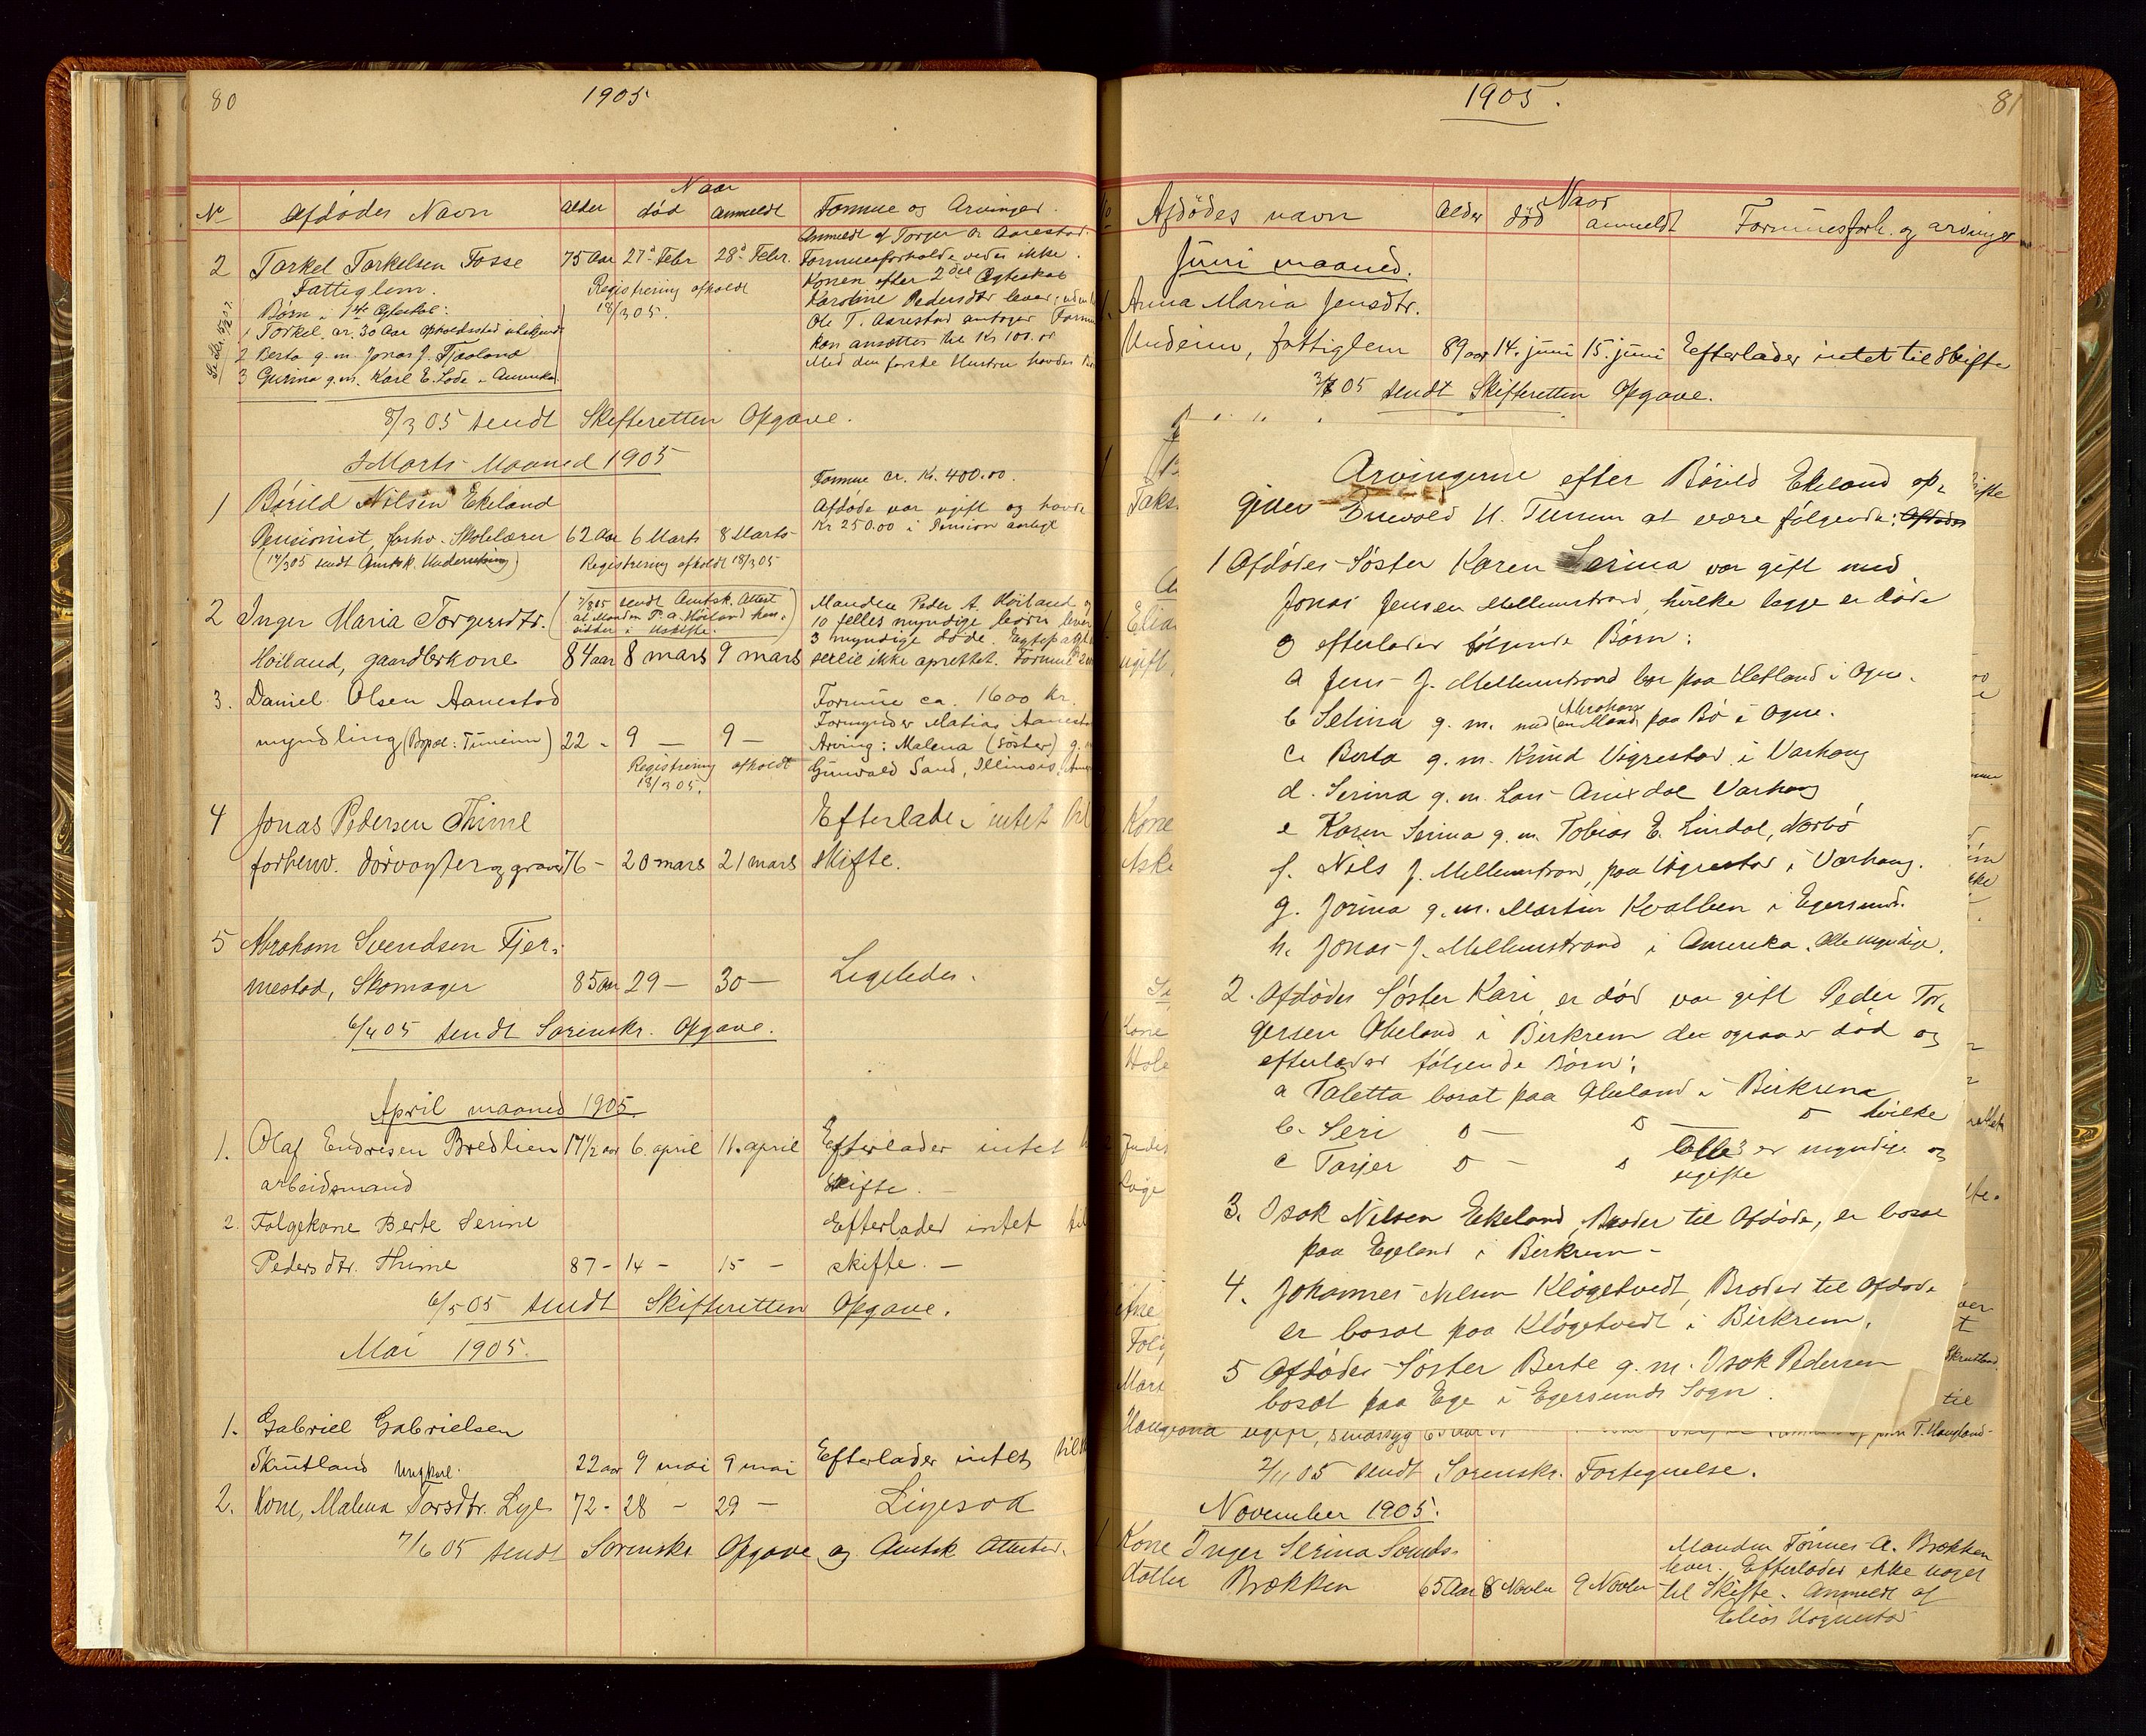 80
1905
Naar
No Afdødes Navn Alder død anmeldt Formue og Arvinger.
Anmeldt af Torger O. Aarestad.
2 Torkel Torkelsen Fosse 75 Aar 27d Febr 28d Febr. Formuesforholde vides ikke.
Fattiglem. Registrering afholdt Konen efter 2det Ægteskab
Børn i 1ste Ægteskab: 18/3 05. Karoline Pedersdtr lever;
1 Torkel, ca. 30 Aar Opholdssted Ole T. Aarestad antager Formuen
2 Berta g.m. Jonas J. Fjæland kan ansættes til Kr 100.00
3 Gurina g.m. Karl E. Lode i Amerika. Med den første Hustru havdes
8/3 05 sendt Skifteretten Opgave.
Marts Maaned 1905
Formue ca. Kr. 400.00.
1 Børild Nilsen Ekeland Afdøde var ugift og havde
Pensionist, forhv. Skolelærer 62 Aar 6 Marts 8 Marts Kr 250.00 i Pension aarligt
(17/3 05 sendt Amtsk. Underretning) Registrering afholdt 18/3 05
2 Inger Maria Torgersdtr. sendt Amtsk. Attest Manden Peder A. Høiland
at Manden P. A. Høiland 10 felles myndige børn lever
sidder i Uskifte. 3 myndige døde.
Høiland, gaardbrkone 84 aar 8 mars 9 mars ikke oprettet. Formue
3. Daniel Olsen Aanestad Formue ca. 1600 kr.
Formynder Matias Aanestad
myndling (Bopæl: Tunheim) 22 - 9 — 9 — Arving: Malena (søster) g.
Registrering afholdt Gunvald Sand, Illinois,
18/3 05.
4 Jonas Pedersen Thime Efterlader intet til
forhenv. dørvogter og graver 76 - 20 mars 21 mars skifte.
5 Abraham Svendsen Fjer-
mestad, Skomager 85 aar 29 — 30 — Ligeledes.
6/4 05 sendt Sorenskr. Opgave.
April maaned 1905.
1. Olaf Endresen Bredlien 17 1/2 aar 6. april 11. april Efterlader intet
arbeidsmand skifte. —
2. Folgekone Berte Serine Efterlader intet til
Pedersdtr. Thime 87 - 14 - 15 - skifte. —
6/5 05 sendt Skifteretten Opgave.
Mai 1905.
1. Gabriel Gabrielsen
Skrutland Ungkarl. 22 aar 9 mai 9 mai Efterlader intet til
2. Kone, Malena Tarsdtr. Lye 72 - 28 - 29 — Ligesaa
7/6 05 sendt Sorenskr Opgave og Amtsk Attester.
1905.
81
Naar
Afdødes navn Alder død anmeldt Formuesforh. og arvinger
Juni maaned.
Anna Maria Jensdtr.
Undeim, fattiglem 89 aar 14. juni 15. juni Efterlader intet til skifte
3/7 05 sendt Skifteretten Opgave.
Arvingerne efter Børild Ekeland op-
giver H. Tunem at være følgende: Afdødes
1 Afdødes Søster Karen Serina var gift med
Jonas Jensen Mellemstrand, hvilke begge er døde
og efterlader følgende Børn:
a Jens J. Mellemstrand bor paa Hetland i Ogne.
b Selina g.m. med Abraham paa Bø i Ogne.
c. Berta g.m. Knud Vigrestad i Varhaug
d. Serina g.m. Lars Varhaug
e Karen Serina g.m. Tobias E. Lindal, Nærbø
f. Nils J. Mellemstrand, paa Vigrestad i Varhaug.
g. Jorina g.m. Martin Kvalben i Egersund.
h. Jonas J. Mellemstrand i Amerika. Alle myndige.
2. Afdødes Søster Kari er død var gift Peder Tor-
gersen Abeland i Birkrem der ogsaa er død og
efterlader følgende Børn:
a Taletta bosat paa Abeland i Birkrem
b. Seri D — D — D hvilke
c Tarjer D — D alle 3 er myndige og
ugifte
3. Isak Nilsen Ekeland, Broder til Afdøde, er bosat
paa Egeland i Birkrem -
4. Johannes Nilsen Kløgetvedt, Broder til Afdøde
er bosat paa Kløgetvedt i Birkrem.
5 Afdødes Søster Berte g.m. Isak Pedersen
bosat paa Ege i Egersunds Sogn.
T. Haugland-
2/11 05 sendt Sorenskr. Fortegnelse.
November 1905.
1 Kone Inger Serina Sands- Manden Tønnes A. Brækken
datter Brækken 65 Aar 8 Novbr 9 Novbr lever. Efterlader ikke noget
til Skifte. Anmeldt af
Elias